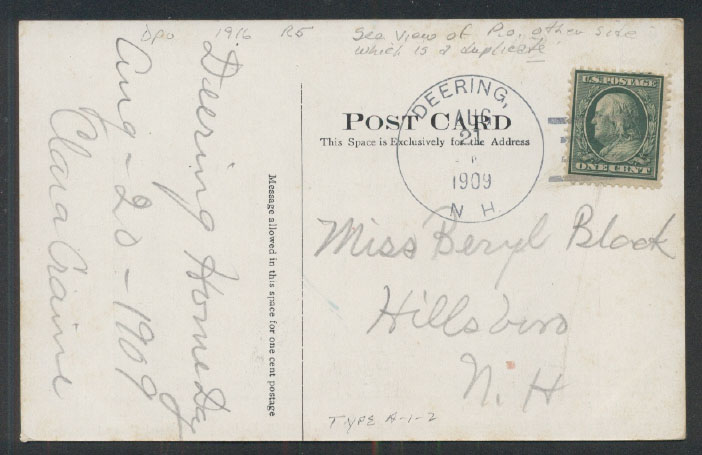 DPO 1916 R5
See View of P.O. other side
which is a duplicate
Deering Home Day
Aug - 20 - 1909
Clara Craine
Message allowed in this space for one cent postage
POST CARD
This Space is Exclusively for the Address
DEERING,
AUG
21
1909
N.H.
U.S. POSTAGE
ONE CENT
Miss Beryl Block
Hillsboro
N.H
TYPE A-1-2